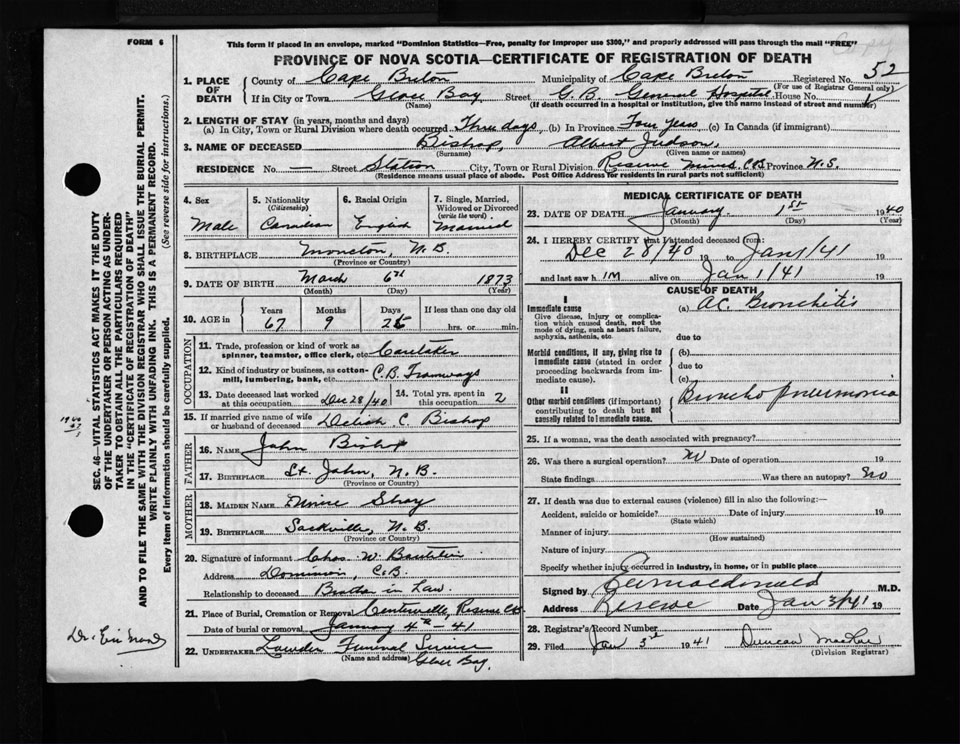 FORM 6
This form if placed in an envelope, marked "Dominion Statistics—Free, penalty for improper use $300," and properly addressed will pass through the mail "FREE"
Copy
PROVINCE OF NOVA SCOTIA—CERTIFICATE OF REGISTRATION OF DEATH
1. PLACE OF DEATH County of Cape Breton Municipality of Cape Breton Registered No. 52
(For use of Registrar General only)
If in City or Town Glace Bay Street G. B. General Hospital House No.
(Name) (If death occurred in a hospital or institution, give the name instead of street and number)
2. LENGTH OF STAY (in years, months and days)
(a) In City, Town or Rural Division where death occurred Three days (b) In Province Four Years (c) In Canada (if immigrant)
3. NAME OF DECEASED Bishop, Albert Judson,
(Surname) (Given name or names)
RESIDENCE No. — Street Station City, Town or Rural Division Reserve Mines C.B. Province N.S.
(Residence means usual place of abode. Post Office Address for residents in rural parts not sufficient)
4. Sex Male
5. Nationality (Citizenship) Canadian
6. Racial Origin English
7. Single, Married, Widowed or Divorced (write the word) Married
8. BIRTHPLACE Moncton, N.B.
(Province or Country)
9. DATE OF BIRTH March 6th 1873
(Month) (Day) (Year)
10. AGE in Years 67 Months 9 Days 25 If less than one day old hrs. or min.
OCCUPATION
11. Trade, profession or kind of work as spinner, teamster, office clerk, etc. Caretaker
12. Kind of industry or business, as cotton-mill, lumbering, bank, etc. C.B. Tramways
13. Date deceased last worked at this occupation Dec 28/40
14. Total yrs. spent in this occupation 2
15. If married give name of wife or husband of deceased C. Bishop
FATHER
16. NAME John Bishop
17. BIRTHPLACE St. John, N.B.
(Province or Country)
MOTHER
18. MAIDEN NAME
19. BIRTHPLACE Sackville, N.B.
(Province or Country)
20. Signature of informant Chas. W.
Address Dominion, C.B.
Relationship to deceased Brother in Law
21. Place of Burial, Cremation or Removal Centerville, Reserve
Date of burial or removal January 4th - 41
22. UNDERTAKER Funeral Service
(Name and address) Glace Bay
MEDICAL CERTIFICATE OF DEATH
23. DATE OF DEATH January 1st 1940
(Month) (Day) (Year)
24. I HEREBY CERTIFY that I attended deceased from:
Dec 28/40 19 to Jan 1/41 19
and last saw h IM alive on Jan 1/41 19
CAUSE OF DEATH
I
Immediate cause
Give disease, injury or complication which caused death, not the mode of dying, such as heart failure, asphyxia, asthenia, etc.
(a) AC. Bronchitis
due to
Morbid conditions, if any, giving rise to immediate cause (stated in order proceeding backwards from immediate cause).
(b)
due to
(c)
II
Other morbid conditions (if important) contributing to death but not causally related to immediate cause.
Broncho pneumonia
25. If a woman, was the death associated with pregnancy?
26. Was there a surgical operation? No Date of operation 19
State findings Was there an autopsy? No
27. If death was due to external causes (violence) fill in also the following:—
Accident, suicide or homicide? Date of injury 19
(State which)
Manner of injury
(How sustained)
Nature of injury
Specify whether injury occurred in industry, in home, or in public place
Signed by Macdonald M.D.
Address Reserve Date Jan 2/41 19
28. Registrar's Record Number
29. Filed Jan 3rd 1941 Duncan
(Division Registrar)
SEC. 46—VITAL STATISTICS ACT MAKES IT THE DUTY
OF THE UNDERTAKER OR PERSON ACTING AS UNDER-
TAKER TO OBTAIN ALL THE PARTICULARS REQUIRED
IN THE "CERTIFICATE OF REGISTRATION OF DEATH"
AND TO FILE THE SAME WITH THE DIVISION REGISTRAR WHO SHALL ISSUE THE BURIAL PERMIT.
WRITE PLAINLY WITH UNFADING INK. THIS IS A PERMANENT RECORD.
Every item of information should be carefully supplied. (See reverse side for instructions.)